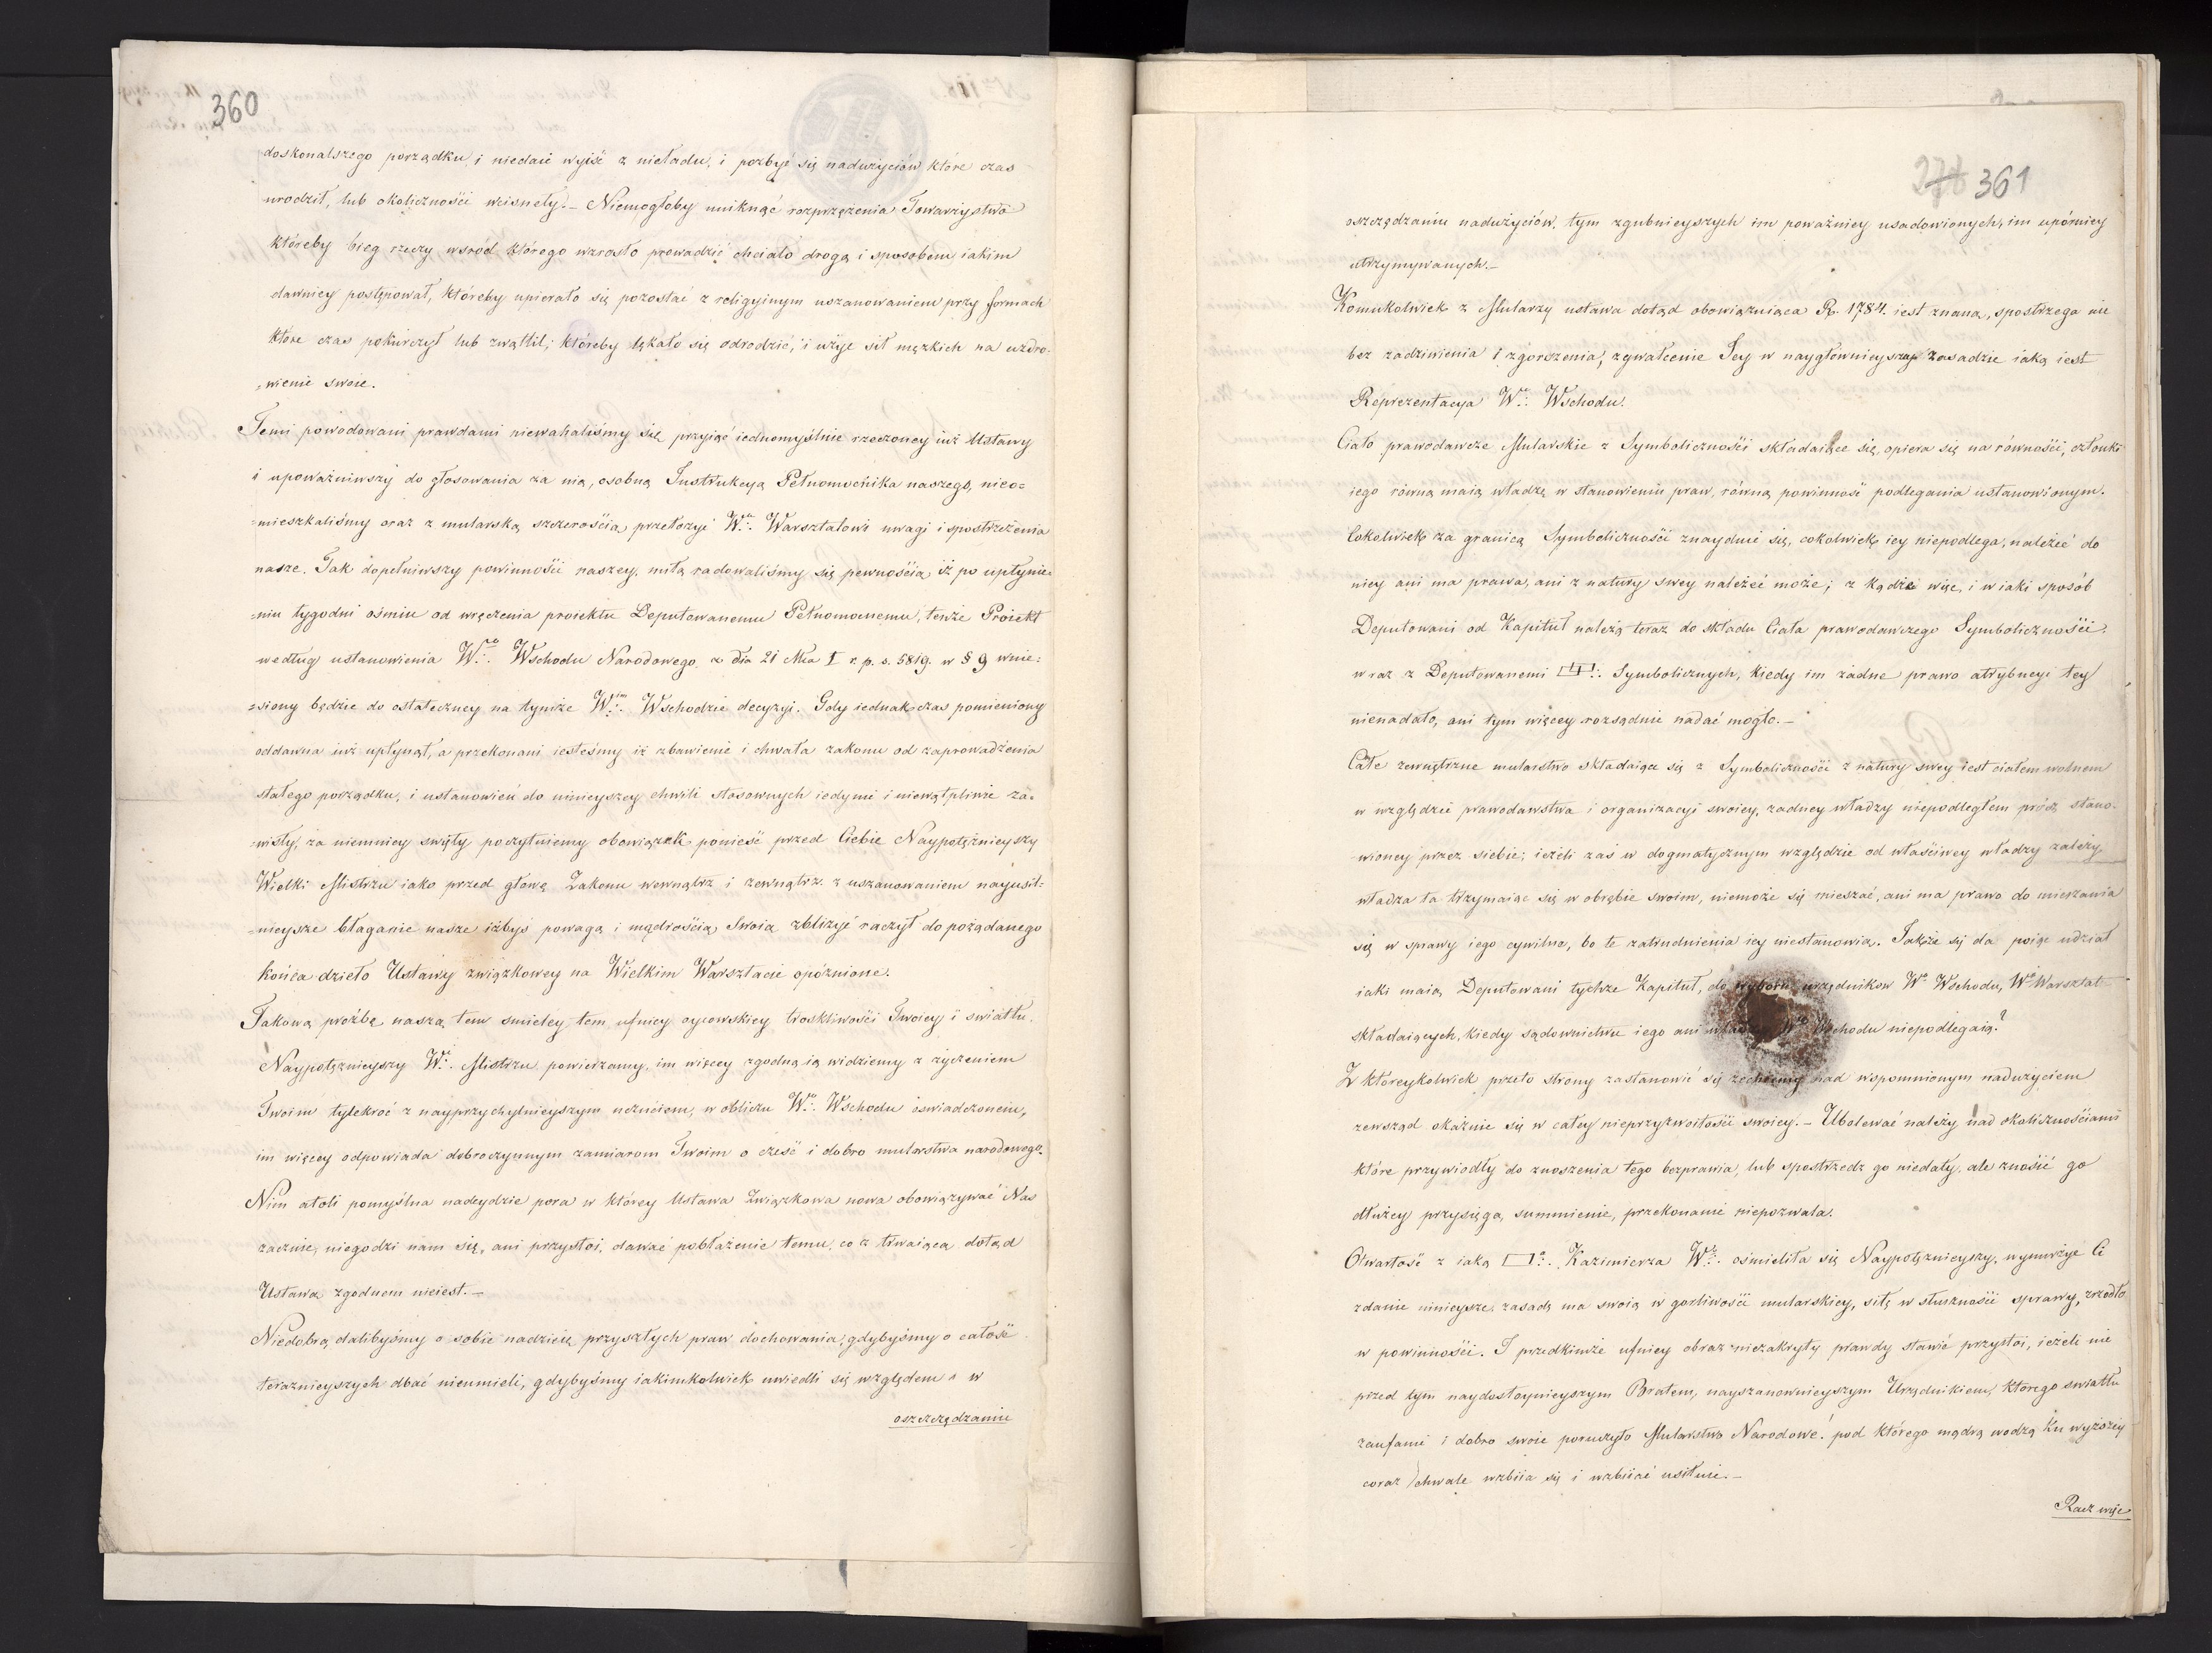 360
doskonalszego porządku, i niedać wyiść z nieładu, i pozbyć się nadużyciów które czas
urodził, lub okoliczności wcisnęły. – Niemogłoby uniknąć rozprzężenia Towarzystwo
któreby bieg rzeczy, wsród którego wzrosło prowadzić chciało drogą i sposobem iakim
dawniey postępował, któreby upierało się pozostać z religyinym uszanowaniem przy formach
które czas pokurczył lub zwątlił; któreby lękało się odrodzić, i użyć sił męzkich na uzdro-
=wienie swoie.
Temi powodowani prawdami niewahaliśmy się przyiąć iednomyślnie rzeczoney iuż Ustawy
i upoważniwszy do głosowania za nią, osobną Instrukcyą Pełnomocnika naszego, nieo=
=mieszkaliśmy oraz z mularską szczerością przełożyć W.̇. Warsztatowi uwagi i spostrzeżenia
nasze. Tak dopełniwszy powinności naszey, miłą radowaliśmy się pewnością iż po upłynie=
=niu tygodni ośmiu od wręczenia proiektu Deputowanemu Pełnomocnemu, tenże Proiekt
według ustanowienia W.̇. Wschodu Narodowego z dia 21 Mca I r. p. s. 5819. w § 9 wnie=
=siony będzie do ostateczney na tymże W.̇. Wschodzie decyzyi. Gdy iednak czas pomieniony
oddawna iuż upłynął, a przekonani iesteśmy iż zbawienie i chwała zakonu od zaprowadzenia
stałego porządku, i ustanowień do ninieyszey chwili stosownych iedynie i niewątpliwie za=
=wisły, za niemniey święty poczytuiemy obowiązek ponieść przed Ciebie Naypotężnieyszy
Wielki Mistrzu iako przed głowę Zakonu wewnątrz i zewnątrz z uszanowaniem nayusil=
=nieysze błaganie nasze iżbyś powagą i mądrością Swoią zbliżyć raczył do pożądanego
końca dzieło Ustawy związkowey na Wielkim Warsztacie opóźnione.
Takową prośbę naszą tem smieley tem ufniey oycowskiey troskliwości Twoiey i światłu,
Naypotężnieyszy W.̇. Mistrzu powierzamy, im więcey zgodną ią widziemy z życzeniem
Twoim tylekroć z nayprzychylnieyszym uczuciem, w obliczu W.̇. Wschodu oświadczonem,
im więcey odpowiada dobroczynnym zamiarom Twoim o cześć i dobro mularstwa narodowego.
Nim atoli pomyślna nadeydzie pora w którey Ustawa Związkowa nowa obowiązywać Nas
zacznie, niegodzi nam się, ani przystoi, dawać pobłażenie temu, co z trwaiącą dotąd
Ustawą zgodnem nieiest. –
Niedobrą dalibyśmy o sobie nadzieię przyszłych praw dochowania, gdybyśmy o całość
teraznieyszych dbać nieumieli, gdybyśmy iakimkolwiek uwiedli się względem w
oszczędzaniu
278 361
oszczędzaniu nadużyciów, tym zgubnieyszych im poważniey usadowionych, im upórniey
utrzymywanych. –
Komukolwiek z Mularzy ustawa dotąd obowiązuiąca R. 1784. iest znaną, spostrzega nie
bez zadziwienia i zgorszenia, zgwałcenie Iey w naygłównieyszey zasadzie iaką iest
Reprezentacya W.̇. Wschodu.
Ciało prawodawcze Mularskie z Symboliczności składaiące się, opiera się na równości, członki
iego równą maią władzę w stanowieniu praw, równą powinność podlegania ustanowionym.
Cokolwiek za granicą Symboliczności znayduie się, cokolwiek iey niepodlega, należeć do
niey ani ma prawa, ani z natury swey należeć może; z kądże więc, i w iaki sposób
Deputowani od Kapituł należą teraz do składu Ciała prawodawczego Symboliczności
wraz z Deputowanemi Symbolicznych, kiedy im żadne prawo atrybucyi tey
nienadało, ani tym więcey rozsądnie nadać mogło. –
Całe zewnętrzne mularstwo składaiące się z Symboliczności z natury swey iest ciałem wolnem
w względzie prawodawstwa i organizacyi swoiey, żadney władzy niepodległem prócz stano-
wioney przez siebie; ieżeli zaś w dogmatycznym względzie od właściwey władzy zależy
władza ta trzymaiąc się w obrębie swoim, niemoże się mieszać, ani ma prawo do mieszania
się w sprawy iego cywilne, bo te zatrudnienia iey niestanowią. Iakże się da poiąć udział
iaki maią Deputowani tychże Kapituł, do wyboru urzędników Wo Wschodu, Wy Warsztat
składaiących, kiedy sądownictwu iego ani Wschodu niepodlegaią?
Z któreykolwiek przeto strony zastanowić się zechcemy nad wspomnionym nadużyciem
zewsząd okażuie się w całey nieprzyzwoitości swoiey. – Ubolewać należy nad okolicznościami
które przywiodły do znoszenia tego bezprawia, lub spostrzedz go niedały, ale znosić go
dłużey przysięga, summienie, przekonanie niepozwala.
Otwartość z iaką Kazimierza W.̇. ośmieliła się Naypotężnieyszy, wynurzyć Ci
zdanie ninieysze, zasadę ma swoią w gorliwości mularskiey, siłę w słuszności sprawy, zrzódło
w powinności. I przedkimże ufniey obraz niezakryty prawdy stawić przystoi, ieżeli nie
przed tym naydostoynieyszym Bratem, nayszanownieyszym Urzędnikiem, którego światłu
zaufanie i dobro swoie poruczyło Mularstwo Narodowe! pod którego mądrą wodzą ku wyższey
coraz chwale wzbiia się i wzbiiać usiłuie. –
Racz więc